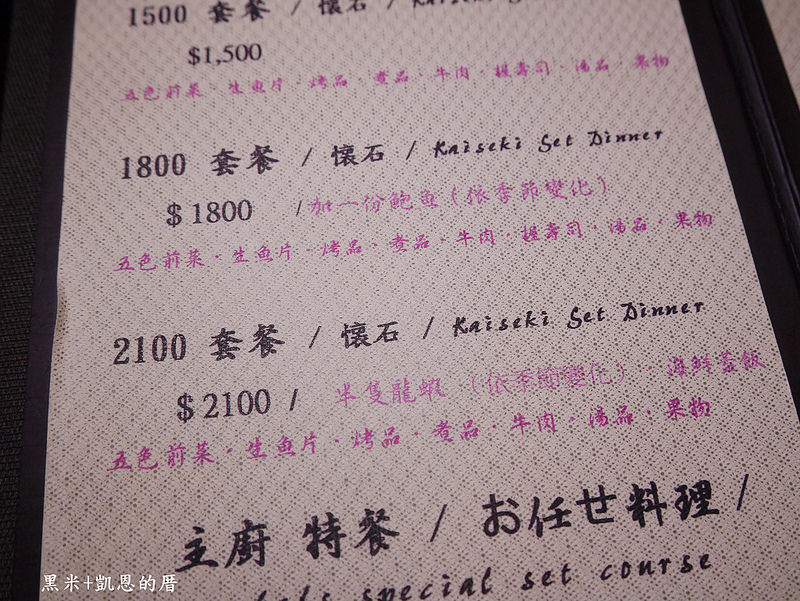 1500 套餐 / 懷石 / Kaiseki
$1,500
五色前菜・生魚片・烤品・煮品・牛肉・握壽司・湯品・果物
1800 套餐 / 懷石 / Kaiseki Set Dinner
$ 1800 /加一份鮑魚(依季節變化)
五色前菜・生魚片・烤品・煮品・牛肉・握壽司・湯品・果物
2100 套餐 / 懷石 / Kaiseki Set Dinner
$ 2100 / 半隻龍蝦 (依季節變化)・海鮮蓋飯
五色前菜・生魚片・烤品・煮品・牛肉・湯品・果物
主廚 特餐 / お任せ料理 /
special set course
黑米+凱恩的厝